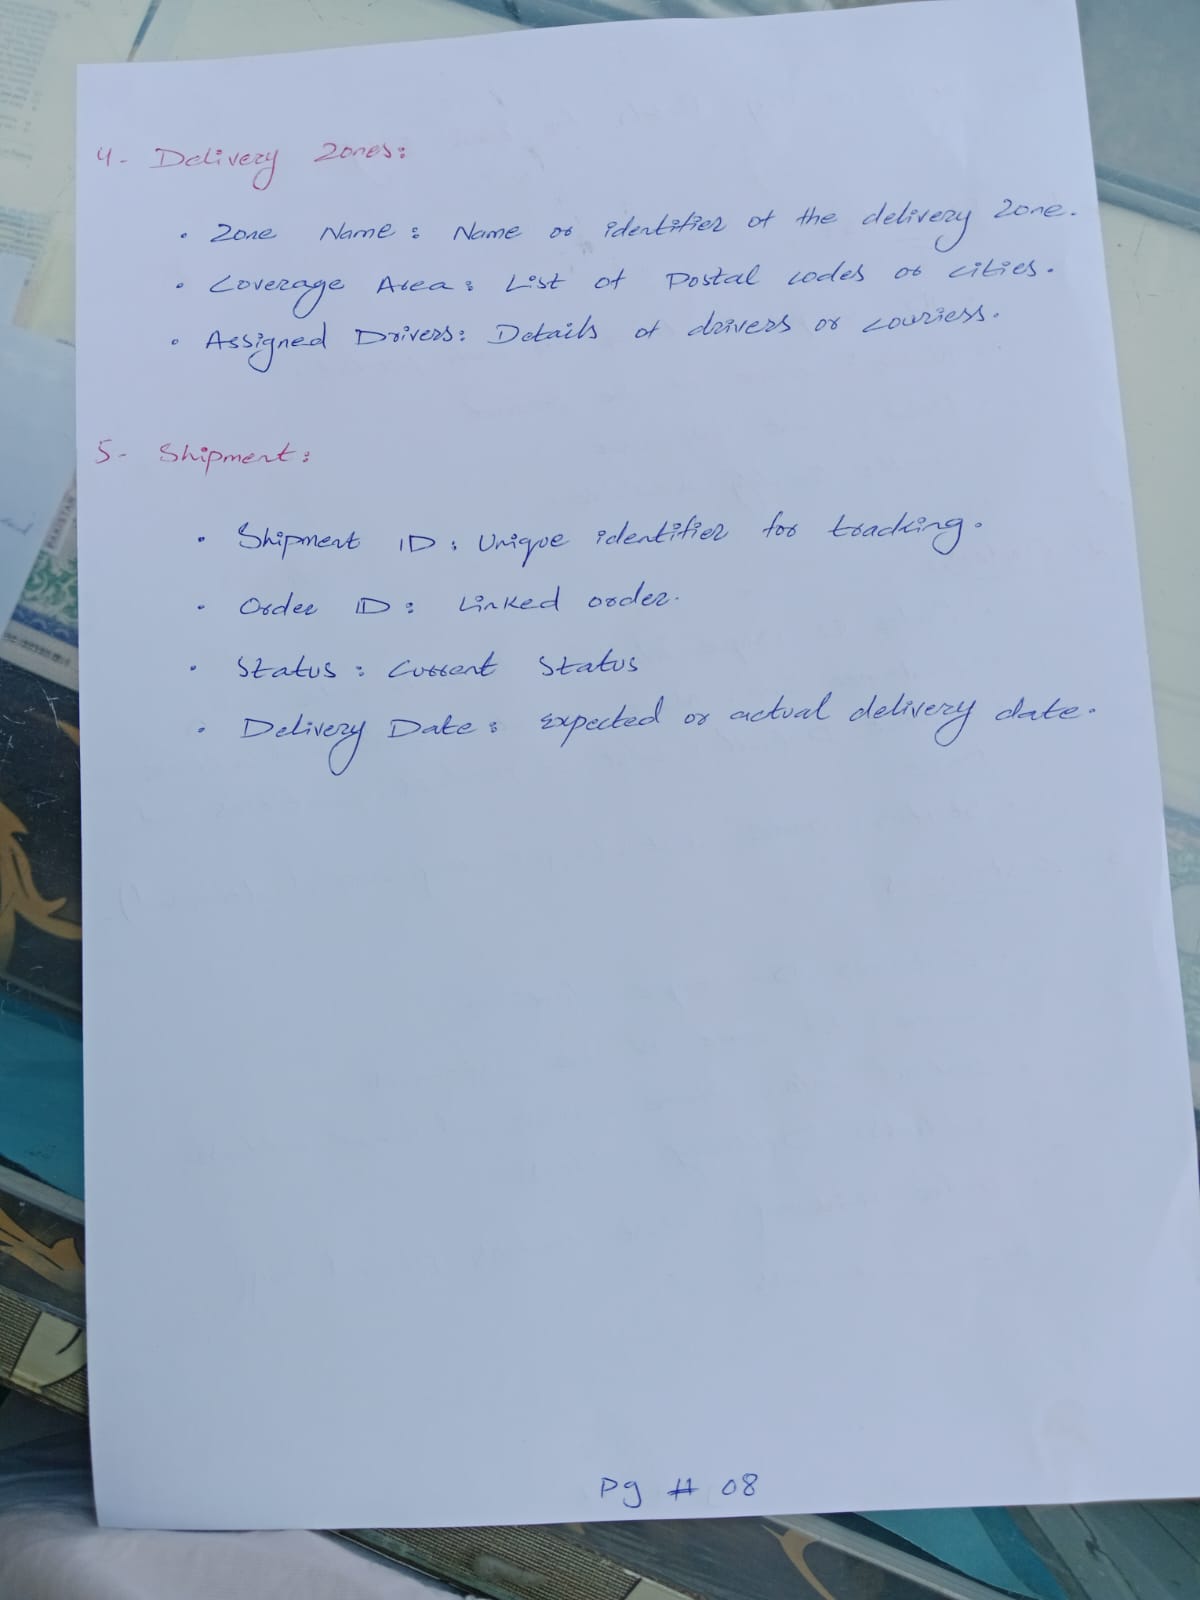 4- Delivery Zones:
• Zone Name: Name or identifier of the delivery zone.
• Coverage Area: List of Postal codes or cities.
• Assigned Drivers: Details of drivers or couriers.
5- Shipment:
• Shipment ID: Unique identifier for tracking.
• Order ID: Linked order.
• Status: Current Status
• Delivery Date: Expected or actual delivery date.
Pg # 08
PAKISTAN